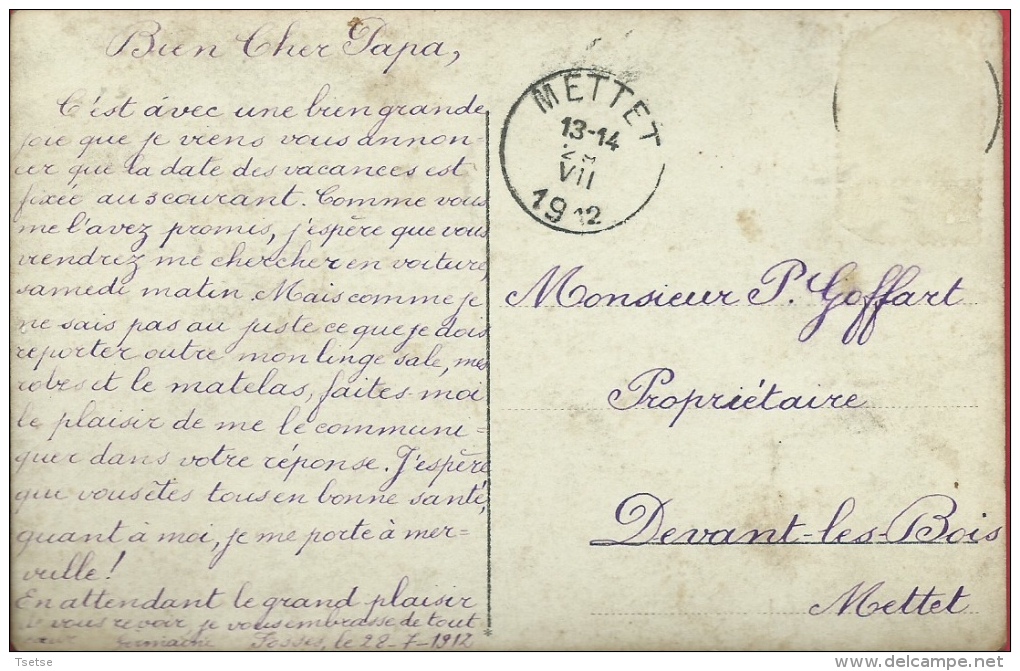 Bien Cher Papa,
C'est avec une bien grande
joie que je viens vous annon-
cer que la date des vacances est
fixée au 3 courant. Comme vous
me l'avez promis, j'espère que vous
viendrez me chercher en voiture
samedi matin. Mais comme je
ne sais pas au juste ce que je dois
reporter outre mon linge sale, mes
robes et le matelas, faites-moi
le plaisir de me le communi=
quer dans votre réponse. J'espère
que vous êtes tous en bonne santé,
quant à moi, je me porte à mer=
veille!
En attendant le grand plaisir
de vous revoir, je vous embrasse de tout
cœur Germaine Fosses, le 28-7-1912
METTET
13-14
VII
1912
Monsieur P. Goffart
Propriétaire
Devant-les-Bois
Mettet
Tsetse
delcampe.net